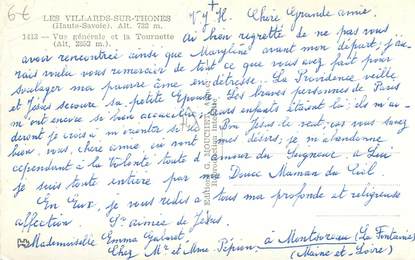 6-6
LES VILLARDS-SUR-THONES
(Haute-Savoie). Alt. 732 m.
1413 — Vue générale et la Tournette
(Alt. 2352 m.)
+
V.J.H. Chère Grande amie.
ai bien regretté de ne pas vous
avoir rencontrée ainsi que Maryline avant mon départ; j'au-
rais voulu vous remercier de tout ce que vous avez fait pour
soulager ma pauvre âme en détresse. La Providence veille
et Jésus secoure sa petite Epouse. Les braves personnes de Paris
m'ont encore si bien accueillie; leurs enfants étaient là; ils m'ai-
deront je crois à m'orienter si le Bon Jésus le veut, car vous savez
bien, vous, chère amie, où vont mes désirs; je m'abandonne
cependant à la Volonté toute d' du Seigneur, à Lui
je suis toute entière par ma Douce Maman du Ciel
En Eux, je vous redis à tous ma profonde et religieuse
affection. Sr aimée de Jésus.
Mademoiselle Emma Gaboret
Chez Mr et Mme Pépion, à Montsoreau (La Fontaine)
(Maine-et-Loire)